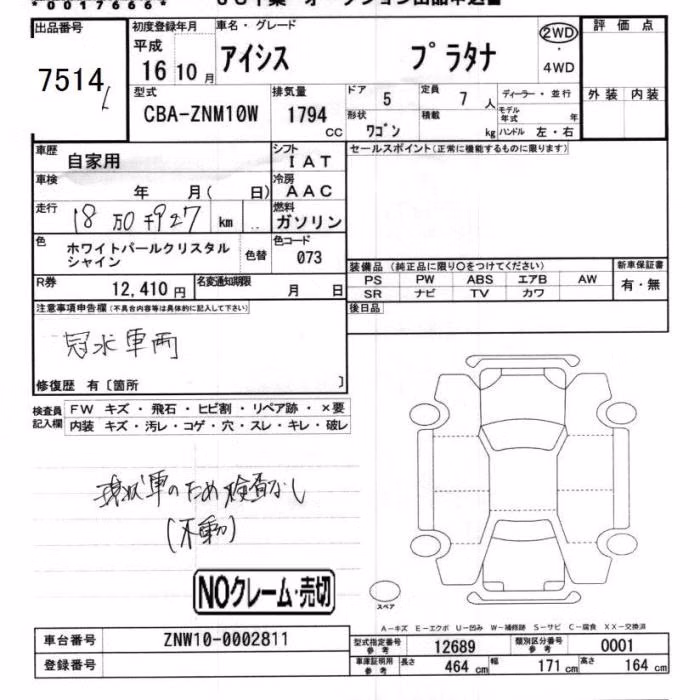 *0017666*
出品番号
7514
初度登録年月
平成
16年10月
車名・グレード
アイシス プラタナ
2WD
・
4WD
評価点
外装 内装
型式
CBA-ZNM10W
排気量
1794
CC
ドア 5
定員 7 人
形状 ワゴン
積載 kg
ディーラー・並行
モデル年式 年
ハンドル 左・右
車歴
自家用
シフト
IAT
車検
年 月( 日)
冷房
AAC
走行
18万0千927 km
燃料
ガソリン
色
ホワイトパールクリスタル
シャイン
色替
色コード
073
R券
12,410円
名変通知期限
月 日
セールスポイント(正常に機能するものに限ります)
装備品 (純正品に限り○をつけてください)
PS PW ABS エアB AW
SR ナビ TV カワ
新車保証書
有・無
後日品
注意事項申告欄(不具合内容等は具体的に記入して下さい)
冠水車両
修復歴 有〔箇所 〕
検査員
記入欄
FW キズ・飛石・ヒビ割・リペア跡・×要
内装 キズ・汚レ・コゲ・穴・スレ・キレ・破レ
現状車のため検査なし
(不動)
NOクレーム・売切
スペア
A-キズ E-エクボ U-凹み W-補修跡 S-サビ C-腐食 XX-交換済
車台番号
ZNW10-0002811
登録番号
型式指定番号
参考
12689
類別区分番号
参考
0001
車庫証明用
参考
長さ 464 cm
幅 171 cm
高さ 164 cm